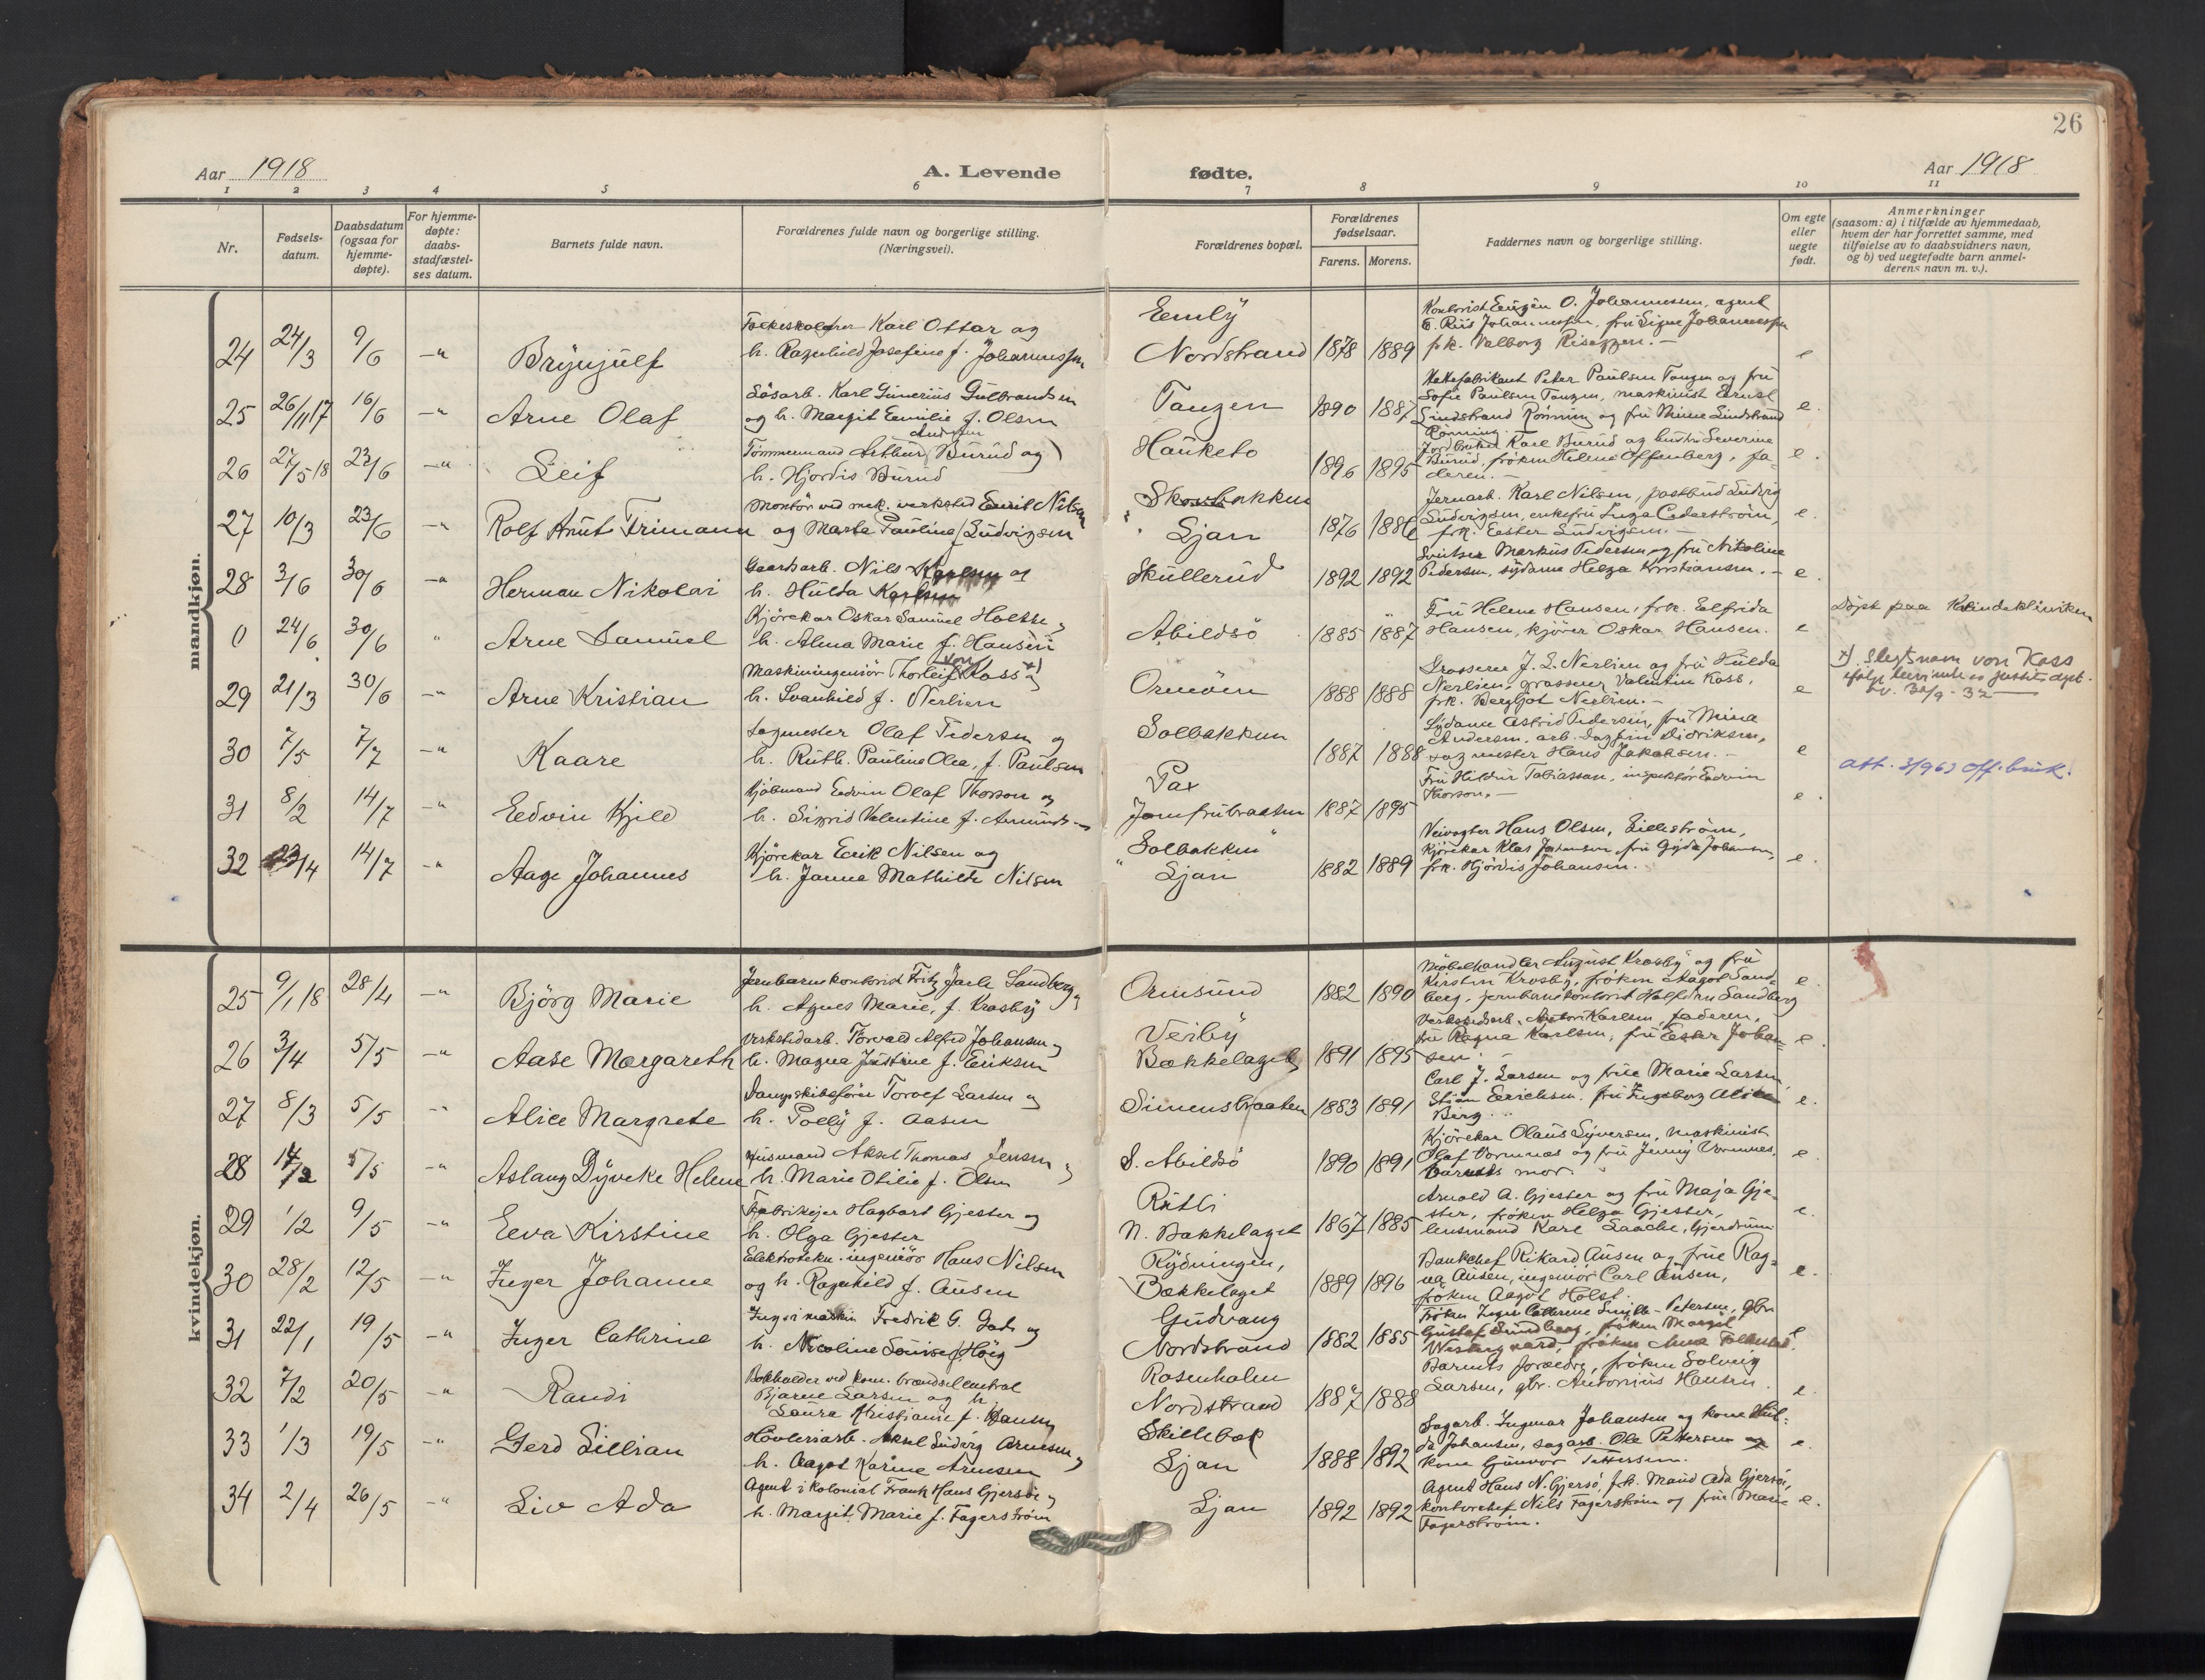 26
Aar 1918
A. Levende
fødte.
Aar 1918
1 2 3 4 5 6 7 8 9 10 11
Nr.
Fødsels-
datum.
Daabsdatum
(ogsaa for
hjemme-
døpte).
For hjemme-
døpte:
daabs-
stadfæstel-
ses datum.
Barnets fulde navn.
Forældrenes fulde navn og borgerlige stilling.
(Næringsvei).
Forældrenes bopæl.
Forældrenes
fødselsaar.
Farens. Morens.
Faddernes navn og borgerlige stilling.
Om egte
eller
uegte
født.
Anmerkninger
(saasom: a) i tilfælde av hjemmedaab,
hvem der har forrettet samme, med
tilføielse av to daabsvidners navn,
og b) ved uegtefødte barn anmel-
derens navn m. v.).
mandkjøn.
24 24/3 9/6 -"- Brynjulf
Karl Ottar og
h. Ragnhild Josefine f. Johannessen
Emily
Nordstrand 1878 1889
Kontorist Eugen O. Johannessen, agent
E. Riis Johannessen, fru Signe Johannessen
frk. Valborg
e
25 26/11 17 16/6 -"- Arne Olaf
Karl Gunerius Gulbrandsen
og h. Margit Emilie f. Olsen
Tangen 1890 1887
Peter Paulsen Tangen og fru
Sofie Paulsen Tangen, maskinist Ernst
Lindstrand Rønning og fru Minne Lindstrand
Rønning
e.
26 27/5 18 23/6 -"- Leif
Andersen
Tømmermand Arthur Burud og
h. Hjordis Burud
Hauketo 1896 1895
Karl Burud og hustru Severine
Burud, frøken Helene Offenberg, fa-
deren. -
e.
27 10/3 23/6 -"- Rolf Knut Trimann
Montør ved mek. verksted Enrit Nilsen
og Marta Pauline f. Ludvigsen
Skovbakken
Ljan 1876 1886
Jernarb. Karl Nilsen, postbud Ludvig
Ludvigsen, enkefru Inga Cederstrøm,
frk. Easter Ludvigsen. -
e.
28 3/6 30/6 -"- Herman Nikolai
Gaardsarb. Nils Karlsen og
h. Hulda Karlsen
Skullerud 1892 1892
Markus Pedersen og fru Nikoline
Pedersen, sydame Helga Kristiansen. -
e.
0 24/6 30/6 " Arne Samuel
Kjørekar Oskar Samuel Holtse
h. Alma Marie f. Hansen
Abildsö 1885 1887
Fru Helene Hansen, frk. Elfrida
Hansen, kjører Oskar Hansen.
e
Døpt paa Kvindeklinikken
29 21/3 30/6 -"- Arne Kristian
Maskiningeniør Thorleif von Koss x)
h. Svanhild f. Nerlien
Ormöen 1888 1888
Grosserer J. L. Nerlien og fru Hulda
Nerlien, grosserer Valentin Koss,
frk. Bergljot Nerlien. -
e
x). Slegtsnavn von Koss
ifølge
30 7/5 7/7 -"- Kaare
Sagmester Olaf Pedersen og
h. Ruth. Pauline Olea, f. Paulsen
Solbakken 1887 1888
Sydame Astrid Pedersen, fru Mina
Andersen, arb. Dagfin Didriksen,
sagmester Hans Jakobsen. -
e
att. 3/963 off. bruk.
31 8/2 14/7 -"- Edvin Kjell
Sjømand Edvin Olaf Thorson og
h. Sigrid Valentine f.
Pax
Jomfrubraaten 1887 1895
Fru Hildur Tobiassen, inspektør Edvin
Thorson. -
e.
32 23/4 14/7 -"- Aage Johannes
Kjørekar Erik Nilsen og
h. Janna Mathilde Nilsen
Solbakken
" Ljan " 1882 1889
Veivogter Hans Olsen, Lillestrøm,
Kjørekar Klas Johansen, fru Gyda Johansen,
frk. Hjørdis Johansen.
e.
kvindekjøn.
25 9/1 18 28/4 -"- Björg Marie
Jernbanekontorist Fritz Jarle Sandberg
h. Agnes Marie, f. Krosby
Ormsund 1882 1890
Møbelhandler August Krosby og fru
Kirsten Krosby, frøken Aagot Sand-
berg, jernbanekontorist Halfdan Sandberg
e.
26 3/4 5/5 -"- Aase Margareth
Verkstedarb. Torvald Alfred Johansen
h. Magna Justine f. Eriksen
Veiby
Bækkelaget 1891 1895
Verkstedarb. Karlsen, faderen,
fru Ragna Karlsen, fru Ester Johan-
sen. -
e.
27 8/3 5/5 -"- Alice Margrete
Dampskibsfører Torolf Larsen og
h. Polly f. Aasen
Simensbraaten 1883 1891
Carl J. Larsen og frue Marie Larsen,
Erichsen. fru Ingeborg
Berg
e.
28 14/2 5/5 -"- Aslaug Dyveke Helene
Husmand Aksel Thomas Jensen
h. Marie Otilie f. Olsen
S. Abildsö 1890 1891
Kjørekar Olaus Syversen, maskinist
Olaf Vormnes og fru Jenny Vormnes.
barnets mor.
e.
29 1/2 9/5 -"- Eva Kirstine
Fabrikejer Hagbart Gjester og
h. Olga Gjester
Rütli
N. Bækkelaget 1867 1885
Arnold A. Gjester og fru Maja Gje-
ster, frøken Helga Gjester,
lensmand Karl Saache, Gjerdrum
e.
30 28/2 12/5 -"- Inger Johanne
Elektrotekn. ingeniør Hans Nilsen
og h. Ragnhild f. Ausen
Rydningen,
Bækkelaget 1889 1896
Bankchef Rikard Ausen og frue Rag-
na Ausen, ingeniør Carl Ausen,
frøken Aagot Holst.
e.
31 22/1 19/5 -"- Inger Cathrine
Fredrik G. Gade og
h. Nicoline Louise f. Höeg
Gudvang
Nordstrand 1882 1885
Frøken Inger Cathrine Smith-Petersen, gbr.
Gustaf Sundberg, frøken Margit
Westergaard, frøken Anna Follestad.
e
32 7/2 20/5 -"- Randi
Bokholder ved kom. brændselcentral
Bjarne Larsen og h.
Laura Kristjanne f. Hansen
Rosenholm
Nordstrand 1887 1888
Barnets forældre, frøken Solveig
Larsen, gbr. Antonius Hansen.
e.
33 1/3 19/5 -"- Gerd Lillian
Høvleriarb. Aksel Ludvig Arnesen
h. Aagot Karine Arnesen
Skillebæk
Ljan 1888 1892
Sagarb. Ingmar Johansen og kone Hul-
da Johansen, sagarb. Ole Pettersen og
kone Gunvor Pettersen.
e.
34 2/4 26/5 -"- Liv Ada
Agent i kolonial Frank Hans Gjersøe
h. Margit Marie f. Fagerstrøm
Ljan 1892 1892
Agent Hans N. Gjersö, frk. Maud Ada Gjersöe,
kontorchef Nils Fagerstrøm og frue Marie
Fagerstrøm.
e.